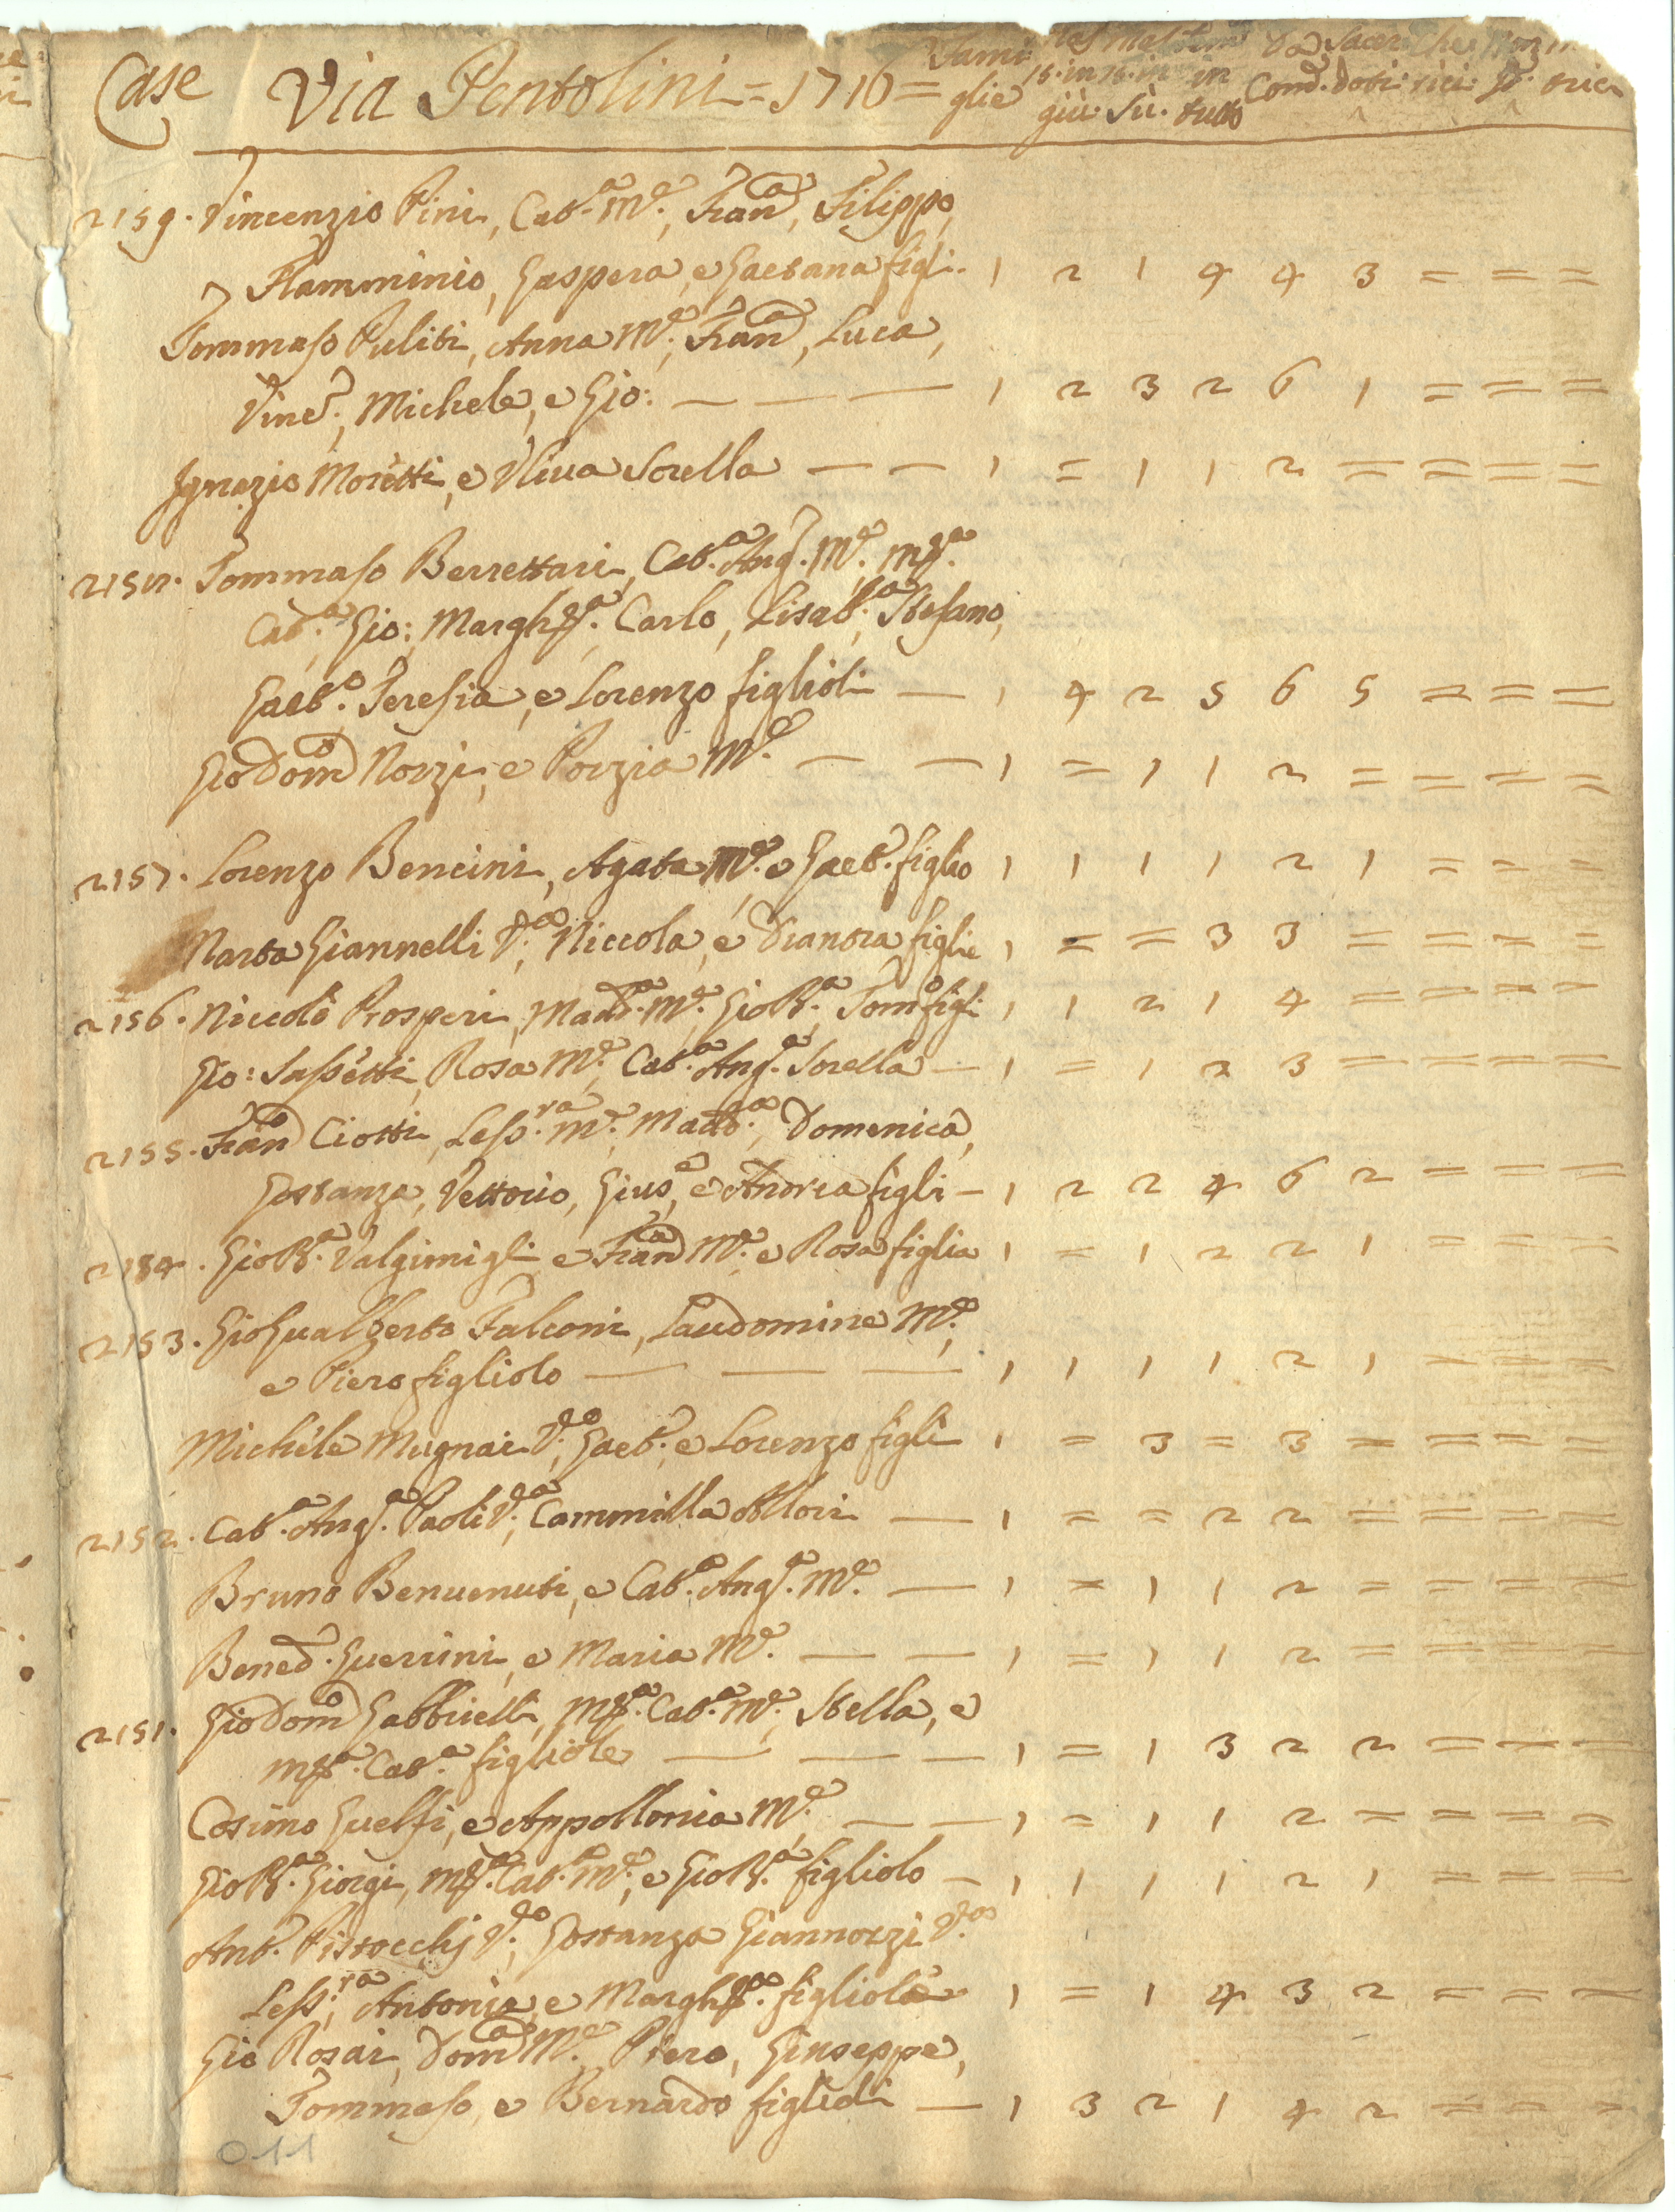 Case Via Pentolini = 1716 = Fami glie
15. in giù 15. in sù. in tutto Com.
2159. Vincenzio Pini, Cat.a M.e, Fran.co, Filippo,
Flamminio, Gaspera, e Gaetana figli. 1 2 1 4 4 3 = = =
Tommaso Puliti, Anna M.e, Fran.ca, Luca,
Vinc.o, Michele, e Gio: — — — 1 2 3 2 6 1 = = =
Ignazio Moretti, e Uliva Sorella — — 1 = 1 1 2 = = = =
2158. Tommaso Berrettari, Cat.a Ang.a M.e, M.a
Cat.a, Gio:, Margh.ta, Carlo, Lisab.a, Stefano,
Gaet.o, Teresia, e Lorenzo figlioli — 1 4 2 5 6 5 = = =
Gio Dom.co Nozzi, e Porzia M.e — — 1 = 1 1 2 = = = =
2157. Lorenzo Bencini, Agata M.e e Gaet.o figlio 1 1 1 1 2 1 = = =
Marta Giannelli V.a, Niccola, e Dianora figlie 1 = = 3 3 = = = =
2156. Niccolò Prosperi, Madd.a M.e, Gio B.a, Tom.o figli 1 1 2 1 4 = = = =
Gio: Sassetti, Rosa M.e, Cat.a Ang.a Sorella — 1 = 1 2 3 = = = =
2155. Fran.co Ciotti, Less.ra M.e, Madd.a, Domenica,
Gostanza, Vettorio, Gius.e, e Andrea figli — 1 2 2 4 6 2 = = =
2154. Gio B.a Valgimigli e Fran.ca M.e e Rosa figlia 1 = 1 2 2 1 = = =
2153. Gio Gualberto Falconi, Laudomine M.e,
e Piero figliolo — — — 1 1 1 1 2 1 = = =
Michele Mugnai V.o, Gaet.o, e Lorenzo figli 1 = 3 = 3 = = = =
2152. Cat.a Ang.a Paoli V.a, Cammilla Allori — 1 = = 2 2 = = = =
Bruno Benvenuti, e Cat.a Ang.a M.e — 1 = 1 1 2 = = = =
Bened.o Guerrini, e Maria M.e — — 1 = 1 1 2 = = = =
2151. Gio Dom.co Gabbrielli, M.a Cat.a M.e, Stella, e
M.a Cat.a figliole — — — 1 = 1 3 2 2 = = =
Cosimo Guelfi, e Appollonia M.e — — 1 = 1 1 2 = = = =
Gio B.a Giorgi, M.a Cat.a M.e, e Gio B.a figliolo — 1 1 1 1 2 1 = = =
Ant.o Pistocchj V.o, Gostanza Giannozzi V.a
Less.ra, Antonia, e Margh.ta figliole 1 = 1 4 3 2 = = =
Gio Rosai, Dom.ca M.e, Piero, Giuseppe,
Tommaso, e Bernardo figlioli — 1 3 2 1 4 2 = = =
011